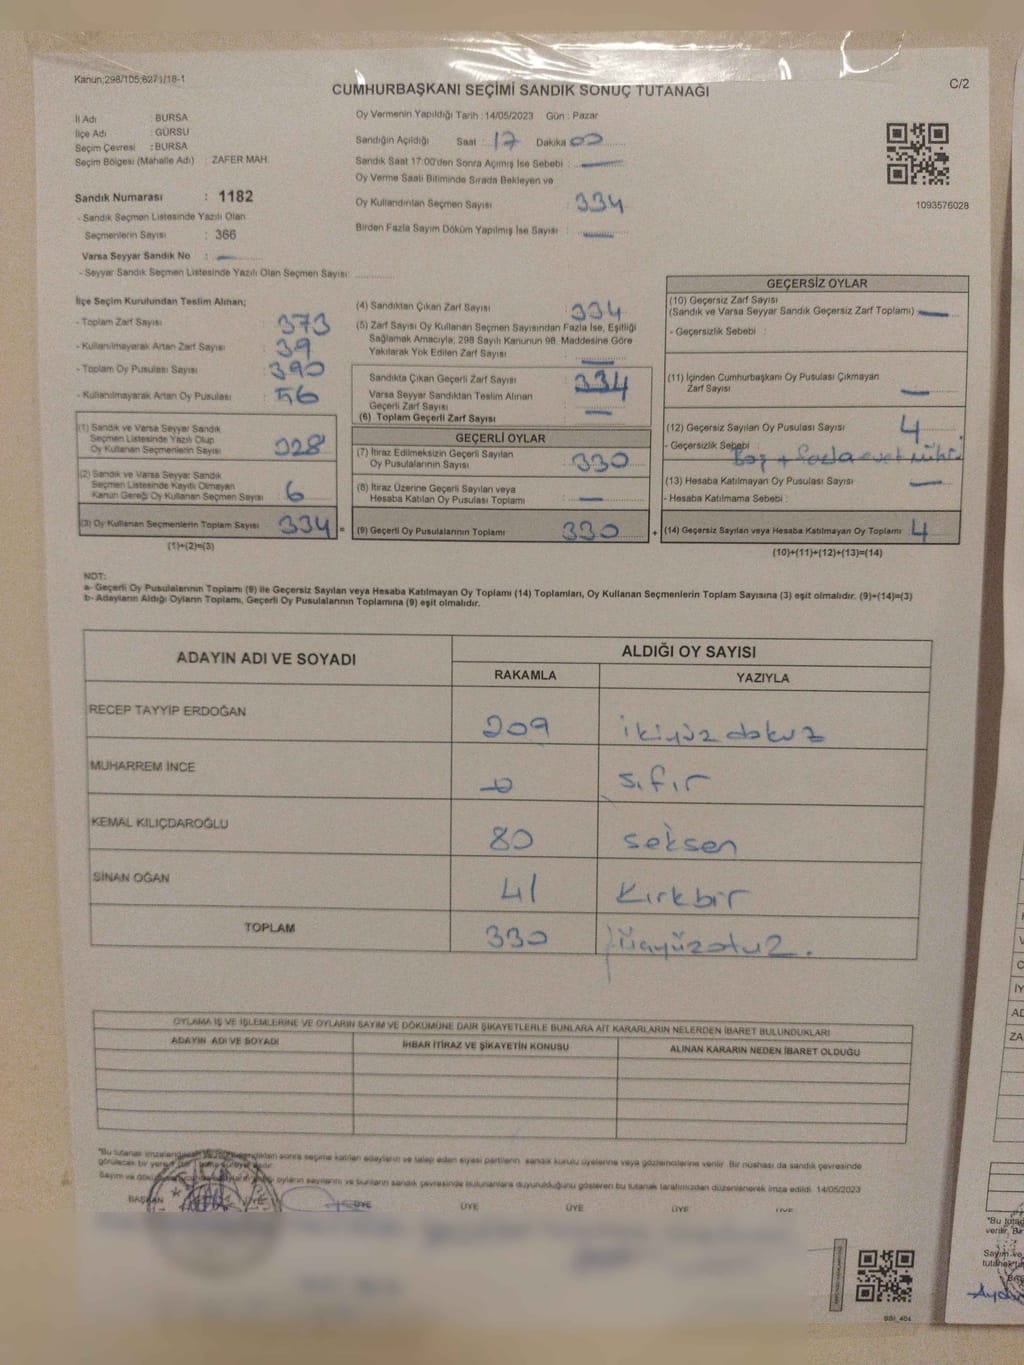 Kanun:298/105,6271/18-1
C/2
CUMHURBAŞKANI SEÇİMİ SANDIK SONUÇ TUTANAĞI
İl Adı BURSA
İlçe Adı : GÜRSU
Seçim Çevresi : BURSA
Seçim Bölgesi (Mahalle Adı) : ZAFER MAH.
Sandık Numarası : 1182
- Sandık Seçmen Listesinde Yazılı Olan
Seçmenlerin Sayısı : 366
Varsa Seyyar Sandık No : -
- Seyyar Sandık Seçmen Listesinde Yazılı Olan Seçmen Sayısı:
Oy Vermenin Yapıldığı Tarih : 14/05/2023 Gün : Pazar
Sandığın Açıldığı Saat : 17 Dakika 00
Sandık Saat 17:00'den Sonra Açımış İse Sebebi : -
Oy Verme Saati Bitiminde Sırada Bekleyen ve
Oy Kullandırılan Seçmen Sayısı : 334
Birden Fazla Sayım Döküm Yapılmış İse Sayısı : -
1093576028
İlçe Seçim Kurulundan Teslim Alınan;
- Toplam Zarf Sayısı : 373
- Kullanılmayarak Artan Zarf Sayısı : 39
- Toplam Oy Pusulası Sayısı : 390
- Kullanılmayarak Artan Oy Pusulası : 56
(1) Sandık ve Varsa Seyyar Sandık
Seçmen Listesinde Yazılı Olup
Oy Kullanan Seçmenlerin Sayısı : 328
(2) Sandık ve Varsa Seyyar Sandık
Seçmen Listesinde Kayıtlı Olmayan
Kanun Gereği Oy Kullanan Seçmen Sayısı : 6
(3) Oy Kullanan Seçmenlerin Toplam Sayısı : 334 =
(1)+(2)=(3)
(4) Sandıktan Çıkan Zarf Sayısı : 334
(5) Zarf Sayısı Oy Kullanan Seçmen Sayısından Fazla İse, Eşitliği
Sağlamak Amacıyla; 298 Sayılı Kanunun 98. Maddesine Göre
Yakılarak Yok Edilen Zarf Sayısı : -
Sandıkta Çıkan Geçerli Zarf Sayısı : 334
Varsa Seyyar Sandıktan Teslim Alınan
Geçerli Zarf Sayısı : -
(6) Toplam Geçerli Zarf Sayısı
GEÇERLİ OYLAR
(7) İtiraz Edilmeksizin Geçerli Sayılan
Oy Pusulalarının Sayısı : 330
(8) İtiraz Üzerine Geçerli Sayılan veya
Hesaba Katılan Oy Pusulası Toplamı : -
(9) Geçerli Oy Pusulalarının Toplamı : 330 +
GEÇERSİZ OYLAR
(10) Geçersiz Zarf Sayısı
(Sandık ve Varsa Seyyar Sandık Geçersiz Zarf Toplamı) : -
- Geçersizlik Sebebi :
(11) İçinden Cumhurbaşkanı Oy Pusulası Çıkmayan
Zarf Sayısı : -
(12) Geçersiz Sayılan Oy Pusulası Sayısı : 4
- Geçersizlik Sebebi : Boş + fazla evet mührü
(13) Hesaba Katılmayan Oy Pusulası Sayısı : -
- Hesaba Katılmama Sebebi :
(14) Geçersiz Sayılan veya Hesaba Katılmayan Oy Toplamı : 4
(10)+(11)+(12)+(13)=(14)
NOT:
a- Geçerli Oy Pusulalarının Toplamı (9) ile Geçersiz Sayılan veya Hesaba Katılmayan Oy Toplamı (14) Toplamları, Oy Kullanan Seçmenlerin Toplam Sayısına (3) eşit olmalıdır. (9)+(14)=(3)
b- Adayların Aldığı Oyların Toplamı, Geçerli Oy Pusulalarının Toplamına (9) eşit olmalıdır.
ADAYIN ADI VE SOYADI ALDIĞI OY SAYISI
RAKAMLA YAZIYLA
RECEP TAYYİP ERDOĞAN 209 ikiyüzdokuz
MUHARREM İNCE 0 sıfır
KEMAL KILIÇDAROĞLU 80 seksen
SİNAN OĞAN 41 kırkbir
TOPLAM 330 üçyüzotuz.
OYLAMA İŞ VE İŞLEMLERİNE VE OYLARIN SAYIM VE DÖKÜMÜNE DAİR ŞİKAYETLERLE BUNLARA AİT KARARLARIN NELERDEN İBARET BULUNDUKLARI
ADAYIN ADI VE SOYADI İHBAR İTİRAZ VE ŞİKAYETİN KONUSU ALINAN KARARIN NEDEN İBARET OLDUĞU
"Bu tutanak sonra seçime katılan adayların ve talep eden siyasi partilerin sandık kurulu üyelerine veya gözlemcilerine verilir. Bir nüshası da sandık çevresinde
görülecek bir yere
Sayım ve oyların sayılarını ve bunların sandık çevresinde bulunanlara duyurulduğunu gösteren bu tutanak tarafımızdan düzenlenerek imza edildi. 14/05/2023
BAŞKAN ÜYE ÜYE ÜYE ÜYE ÜYE ÜYE